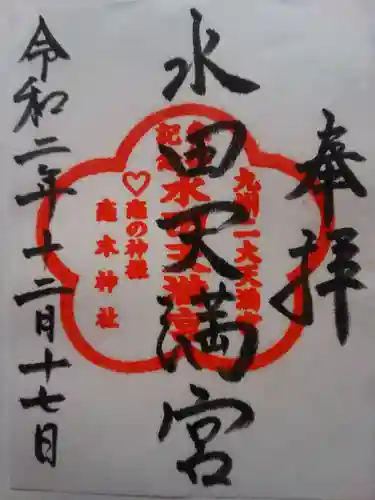 奉拝
水田天満宮
令和二年十二月十七日
九州二大天満宮
水田天満宮
♡恋の神様
恋木神社